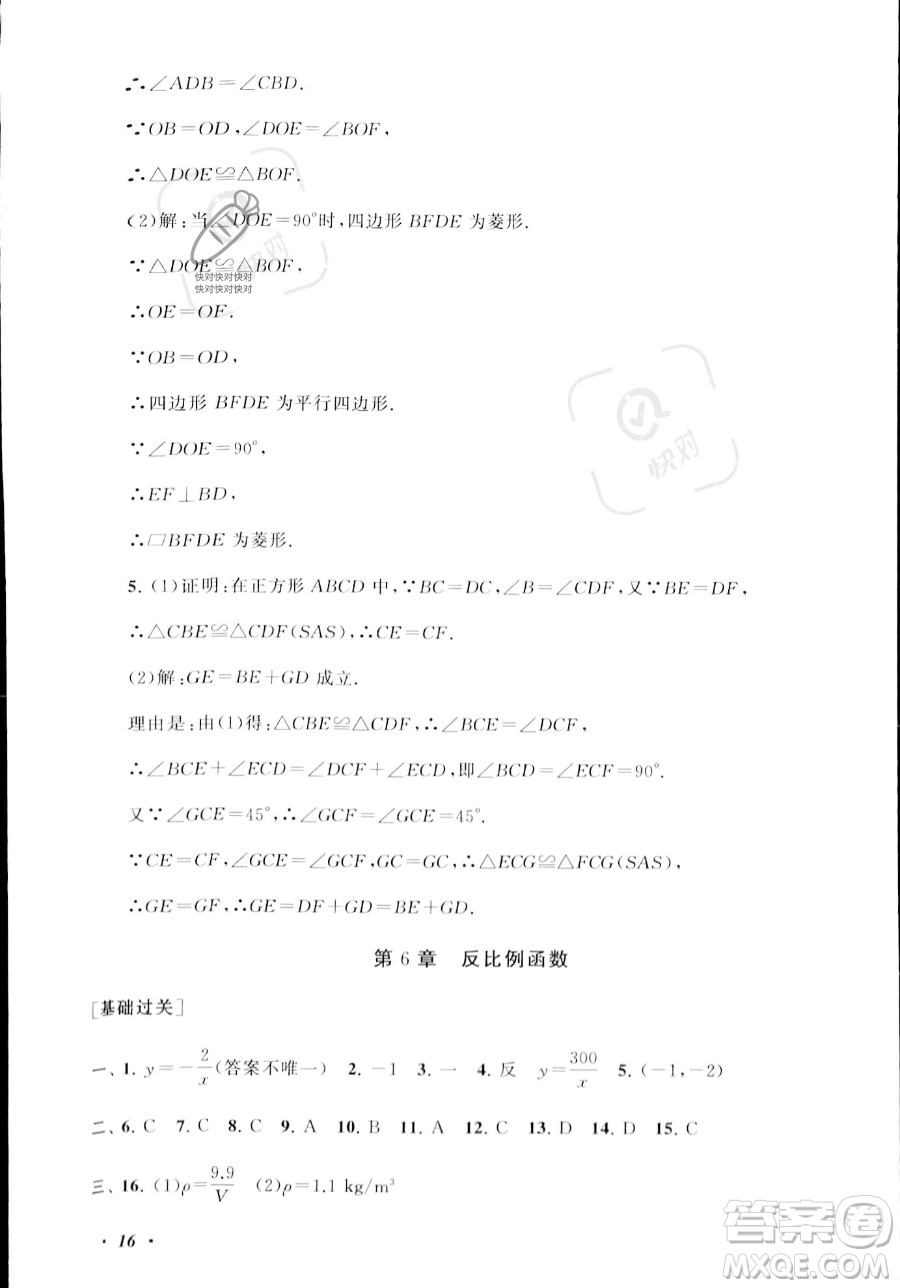 ∴∠ADB=∠CBD.
∵OB=OD,∠DOE=∠BOF,
∴△DOE≌△BOF.
(2)解:当∠DOE=90°时,四边形 BFDE 为菱形.
∵△DOE≌△BOF,
快对快对快对
快对快对快对
快对
∴OE=OF.
∵OB=OD,
∴四边形 BFDE 为平行四边形.
∵∠DOE=90°,
快对
∴EF⊥BD,
∴□BFDE 为菱形.
5. (1)证明:在正方形 ABCD 中,∵BC=DC,∠B=∠CDF,又∵BE=DF,
∴△CBE≌△CDF(SAS),∴CE=CF.
(2)解:GE=BE+GD 成立.
理由是:由(1)得:△CBE≌△CDF,∴∠BCE=∠DCF,
∴∠BCE+∠ECD=∠DCF+∠ECD,即∠BCD=∠ECF=90°.
又∵∠GCE=45°,∴∠GCF=∠GCE=45°.
∵CE=CF,∠GCE=∠GCF,GC=GC,∴△ECG≌△FCG(SAS),
∴GE=GF,∴GE=DF+GD=BE+GD.
第 6 章 反比例函数
[基础过关]
一、1. y=-2/x(答案不唯一) 2. -1 3. 一 4. 反 y=300/x 5. (-1,-2)
二、6. C 7. C 8. C 9. A 10. B 11. A 12. C 13. D 14. D 15. C
三、16. (1)ρ=9.9/V (2)ρ=1.1 kg/m³
· 16 ·
答案卷
MXQE.COM